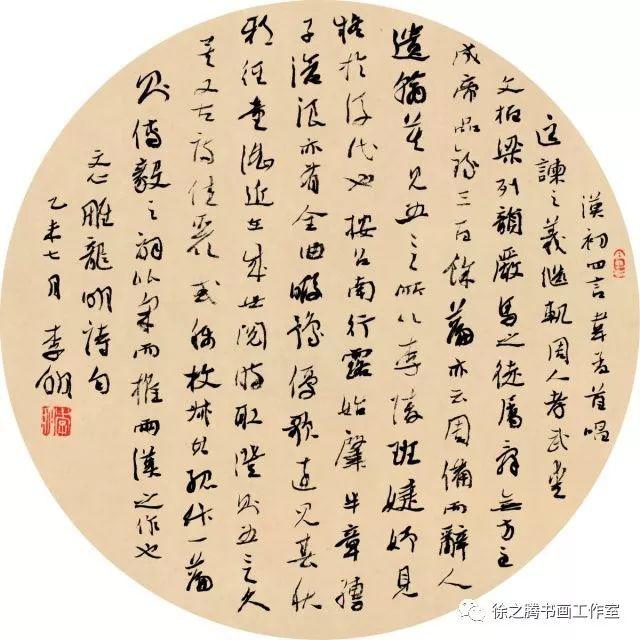 漢初四言韋孟首唱
匡諫之義继軌周人孝武愛
文柏梁列韻嚴馬之徒屬辞無方至
成帝品錄三百餘篇亦云周備而辭人
遺翰莫見五言所以李陵班婕妤見
疑於後代也按召南行露始肇半章孺
子滄浪亦有全曲暇豫優歌遠見春秋
邪徑童謠近在成世閱時取證則五言久
矣又古詩佳麗或稱枚叔其孤竹一篇
則傅毅之詞比采而推兩漢之作也
文心雕龍明詩句
乙未七月 李
徐之腾书画工作室